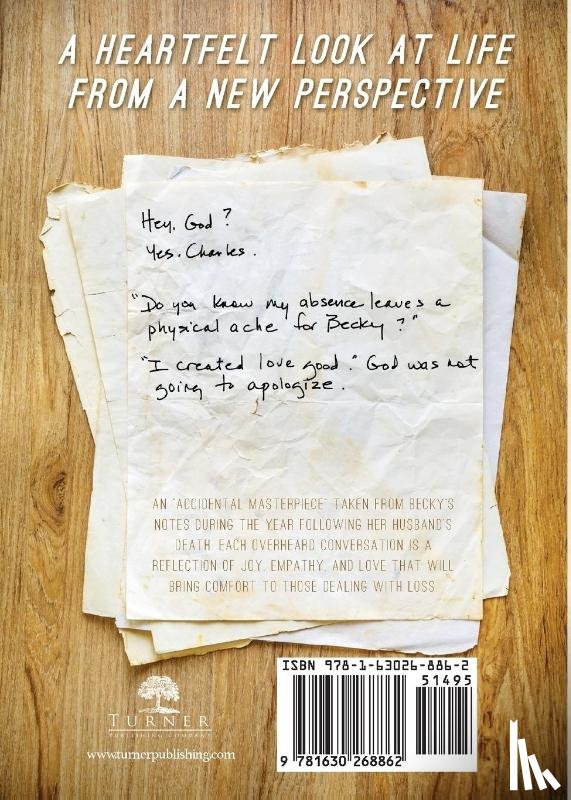 A HEARTFELT LOOK AT LIFE
FROM A NEW PERSPECTIVE
Hey, God?
Yes, Charles.
"Do you know my absence leaves a
physical ache for Becky?"
"I created love good." God was not
going to apologize.
AN "ACCIDENTAL MASTERPIECE" TAKEN FROM BECKY'S
NOTES DURING THE YEAR FOLLOWING HER HUSBAND'S
DEATH. EACH OVERHEARD CONVERSATION IS A
REFLECTION OF JOY, EMPATHY, AND LOVE THAT WILL
BRING COMFORT TO THOSE DEALING WITH LOSS.
TURNER
PUBLISHING COMPANY
www.turnerpublishing.com
ISBN 978-1-63026-886-2
51495
9 781630 268862